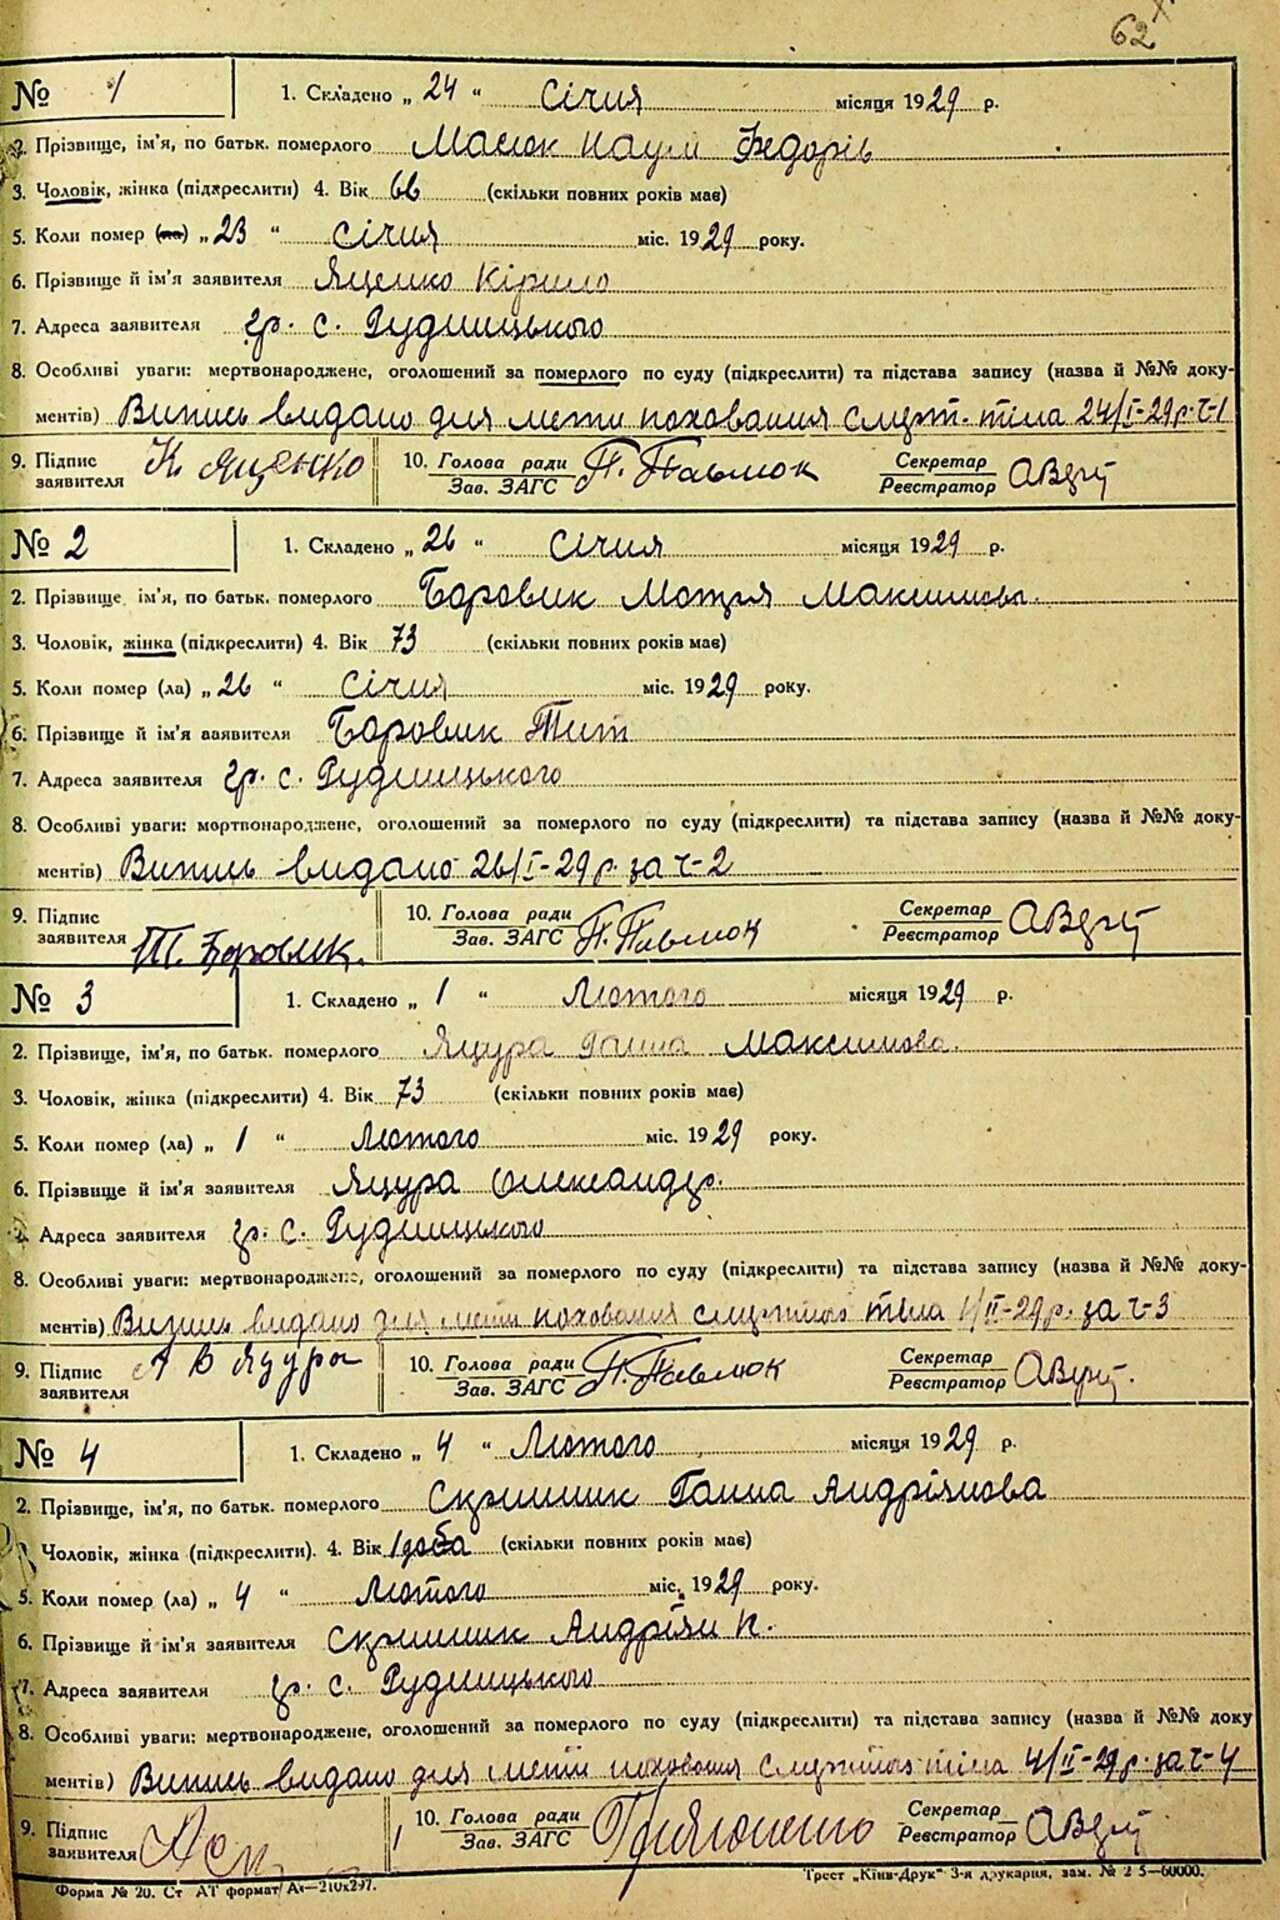 62
№ 1 1. Складено „ 24 “ Січня місяця 1929 р.
2. Прізвище, ім'я, по батьк. померлого Масюк Наум Федорів
3. Чоловік, жінка (підкреслити) 4. Вік 66 (скільки повних років має)
5. Коли помер (ла) „ 23 “ Січня міс. 1929 року.
6. Прізвище й ім'я заявителя Яценко Кірило
7. Адреса заявителя гр. с. Рудницького
8. Особливі уваги: мертвонароджене, оголошений за померлого по суду (підкреслити) та підстава запису (назва й №№ доку-
ментів) Випись видано для мети поховання смерт. тіла 24/I-29 р. ч-1
9. Підпис заявителя К. Яценко 10. Голова ради Зав. ЗАГС П. Павлюк Секретар Реєстратор
№ 2 1. Складено „ 26 “ Січня місяця 1929 р.
2. Прізвище, ім'я, по батьк. померлого Боровик Мотря Максимова.
3. Чоловік, жінка (підкреслити) 4. Вік 73 (скільки повних років має)
5. Коли помер (ла) „ 26 “ Січня міс. 1929 року.
6. Прізвище й ім'я заявителя Боровик Тит
7. Адреса заявителя гр. с. Рудницького
8. Особливі уваги: мертвонароджене, оголошений за померлого по суду (підкреслити) та підстава запису (назва й №№ доку-
ментів) Випись видано 26/I-29 р. за ч-2
9. Підпис заявителя Т. Боровик. 10. Голова ради Зав. ЗАГС П. Павлюк Секретар Реєстратор
№ 3 1. Складено „ 1 “ Лютого місяця 1929 р.
2. Прізвище, ім'я, по батьк. померлого Яцура Ганна Максимова.
3. Чоловік, жінка (підкреслити) 4. Вік 73 (скільки повних років має)
5. Коли помер (ла) „ 1 “ Лютого міс. 1929 року.
6. Прізвище й ім'я заявителя Яцура Олександр.
7. Адреса заявителя гр. с. Рудницького
8. Особливі уваги: мертвонароджене, оголошений за померлого по суду (підкреслити) та підстава запису (назва й №№ доку-
ментів) Випись видано для мети поховання смертного тіла 1/II-29 р. за ч-3
9. Підпис заявителя А В Яцура 10. Голова ради Зав. ЗАГС П. Павлюк Секретар Реєстратор
№ 4 1. Складено „ 4 “ Лютого місяця 1929 р.
2. Прізвище, ім'я, по батьк. померлого Скрипник Ганна Андріянова
3. Чоловік, жінка (підкреслити). 4. Вік 1 доба (скільки повних років має)
5. Коли помер (ла) „ 4 “ Лютого міс. 1929 року.
6. Прізвище й ім'я заявителя Скрипник Андріян К.
7. Адреса заявителя гр. с. Рудницького
8. Особливі уваги: мертвонароджене, оголошений за померлого по суду (підкреслити) та підстава запису (назва й №№ доку
ментів) Випись видано для мети поховання смертного тіла 4/II-29 р. за ч-4
9. Підпис заявителя 10. Голова ради Зав. ЗАГС Секретар Реєстратор
Форма № 20. Ст АТ формат А4—210х297. Трест „Київ-Друк“ 3-я друкарня, зам. № 2 5—60000.